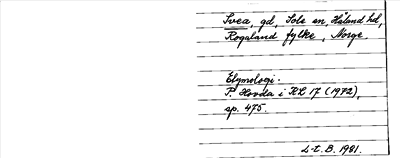 Svea, gd, Sola sn, Håland hd,
Rogaland fylke, Norge.
Etymologi.
P. Hovda i KL 17 (1972),
sp. 475.
L-t. B. 1981.